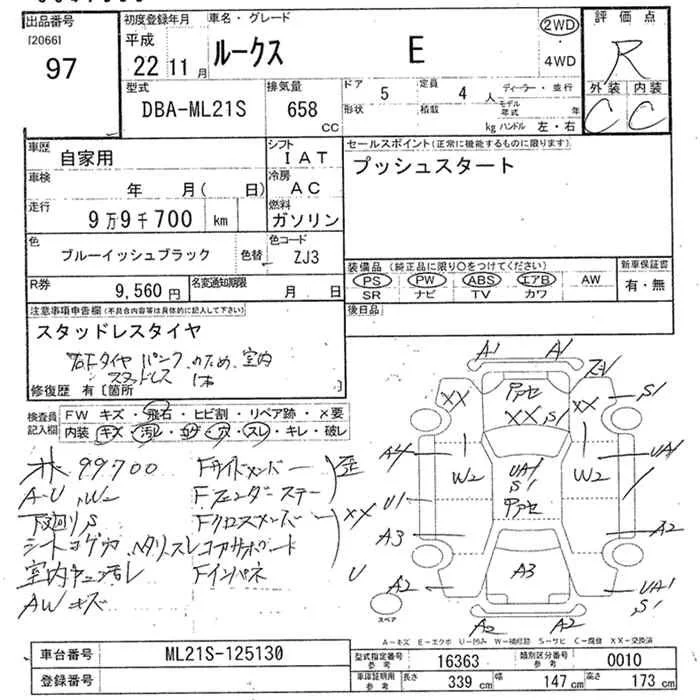 出品番号
[2066]
97
初度登録年月
平成
22 11月
車名・グレード
ルークス E
2WD
・
4WD
評価点
R
外装 内装
C C
型式
DBA-ML21S
排気量
658
CC
ドア 5
定員 4 人
ディーラー・並行
形状
積載
モデル年式 年
kg ハンドル 左・右
車歴
自家用
シフト
IAT
セールスポイント(正常に機能するものに限ります)
プッシュスタート
車検
年 月( 日)
冷房
AC
走行
9万9千700 km
燃料
ガソリン
色
ブルーイッシュブラック
色替
色コード
ZJ3
装備品(純正品に限り○をつけてください)
PS PW ABS エアB AW
SR ナビ TV カワ
新車保証書
有・無
R券
9,560円
名変通知期限
月 日
後日品
注意事項申告欄(不具合内容等は具体的に記入して下さい)
スタッドレスタイヤ
右下タイヤ パンク のため 室内
スタッドレス 1本
修復歴 有 [箇所 ]
検査員記入欄
FW キズ・飛石・ヒビ割・リペア跡・X要
内装 キズ・汚レ・コゲ・穴・スレ・キレ・破レ
99700
A-U, W2
下廻りS
シートコゲ穴
AWキズ
Fサイドメンバー
Fフェンダーステー
Fクロスメンバー
コアサポート
Fインパネ
歪
XX
A1 A1
XX
XX, S1
XX
S1
A4
W2
UA1
S1
W2
UA1
U1
A3
A2
A3
U
A2
UA1
S1
A2 A2
スペア
A－キズ E－エクボ U－凹み W－補修跡 S－サビ C－腐食 XX－交換済
車台番号
ML21S-125130
登録番号
型式指定番号
参考
16363
類別区分番号
参考
0010
車庫証明用
参考
長さ 339 cm
幅 147 cm
高さ 173 cm